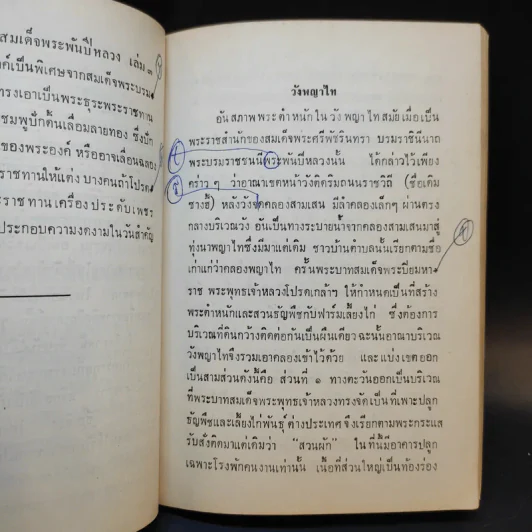 สมเด็จพระพันปีหลวง เล่ม ๓
งค์เป็นพิเศษจากสมเด็จพระบรม
ทรงเอาเป็นพระธุระพระราชทาน
ชมพูปักดิ้นเลื่อมลายทอง ซึ่งปัก
ของพระองค์ หรืออาจเลื่อนฉลอง
ราชทานให้แต่ง บางคนถ้าโปรด
ราชทาน เครื่อง ประดับ เพชร
ประกอบความงดงามในวันสำคัญ
วังพญาไท
อันสภาพ พระ ตำหนัก ใน วัง พญา ไท สมัย เมื่อ เป็น
พระราชสำนักของสมเด็จพระศรีพัชรินทรา บรมราชินีนาถ
พระบรมราชชนนีพระพันปีหลวงนั้น ได้กล่าวไว้เพียง
คร่าว ๆ ว่าอาณาเขตหน้าวังติดริมถนนราชวิถี (ชื่อเดิม
ซางฮี้) หลังวังจดคลองสามเสน มีลำคลองเล็กๆ ผ่านตรง
กลางบริเวณวัง อันเป็นทางระบายน้ำจากคลองสามเสนมาสู่
ทุ่งนาพญาไทซึ่งมีมาแต่เดิม ชาวบ้านตำบลนั้นเรียกตามชื่อ
เก่าแก่ว่าคลองพญาไท ครั้นพระบาทสมเด็จพระปิยมหา
ราช พระพุทธเจ้าหลวงโปรดเกล้าฯ ให้กำหนดเป็นที่สร้าง
พระตำหนักและสวนธัญพืชกับฟาร์มเลี้ยงไก่ ซึ่งต้องการ
บริเวณที่ดินกว้างติดต่อกันเป็นผืนเดียว ฉะนั้นอาณาบริเวณ
วังพญาไทจึงรวมเอาคลองเข้าไว้ด้วย และแบ่งเขตออก
เป็นสามส่วนดังนี้คือ ส่วนที่ ๑ ทางตะวันออกเป็นบริเวณ
ที่พระบาทสมเด็จพระพุทธเจ้าหลวงทรงจัดเป็นที่เพาะปลูก
ธัญพืชและเลี้ยงไก่พันธุ์ ต่างประเทศ จึงเรียกตามพระกระแส
รับสั่งติดมาแต่เดิมว่า "สวนผัก" ในที่นี้มีอาคารปลูก
เฉพาะโรงพักคนงานเท่านั้น เนื้อที่ส่วนใหญ่เป็นท้องร่อง